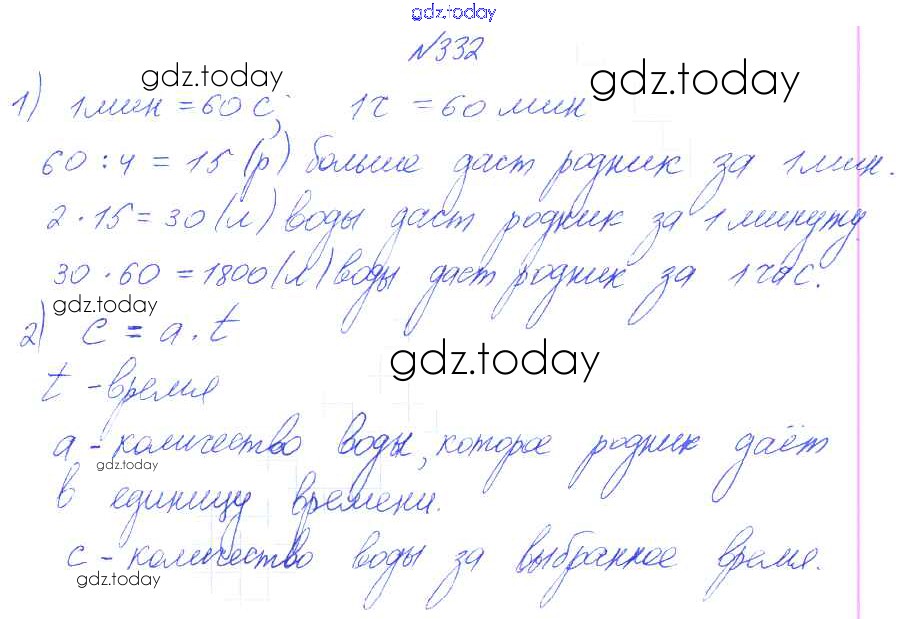 gdz.today
№332
gdz.today gdz.today
1) 1 мин = 60 с; 1 ч = 60 мин
60 : 4 = 15 (р) больше даст родник за 1 мин.
2 · 15 = 30 (л) воды даст родник за 1 минуту
30 · 60 = 1800 (л) воды даст родник за 1 час.
gdz.today
2) c = a · t
gdz.today
t - время
a - количество воды, которое родник даёт
gdz.today
в единицу времени.
c - количество воды за выбранное время.
gdz.today